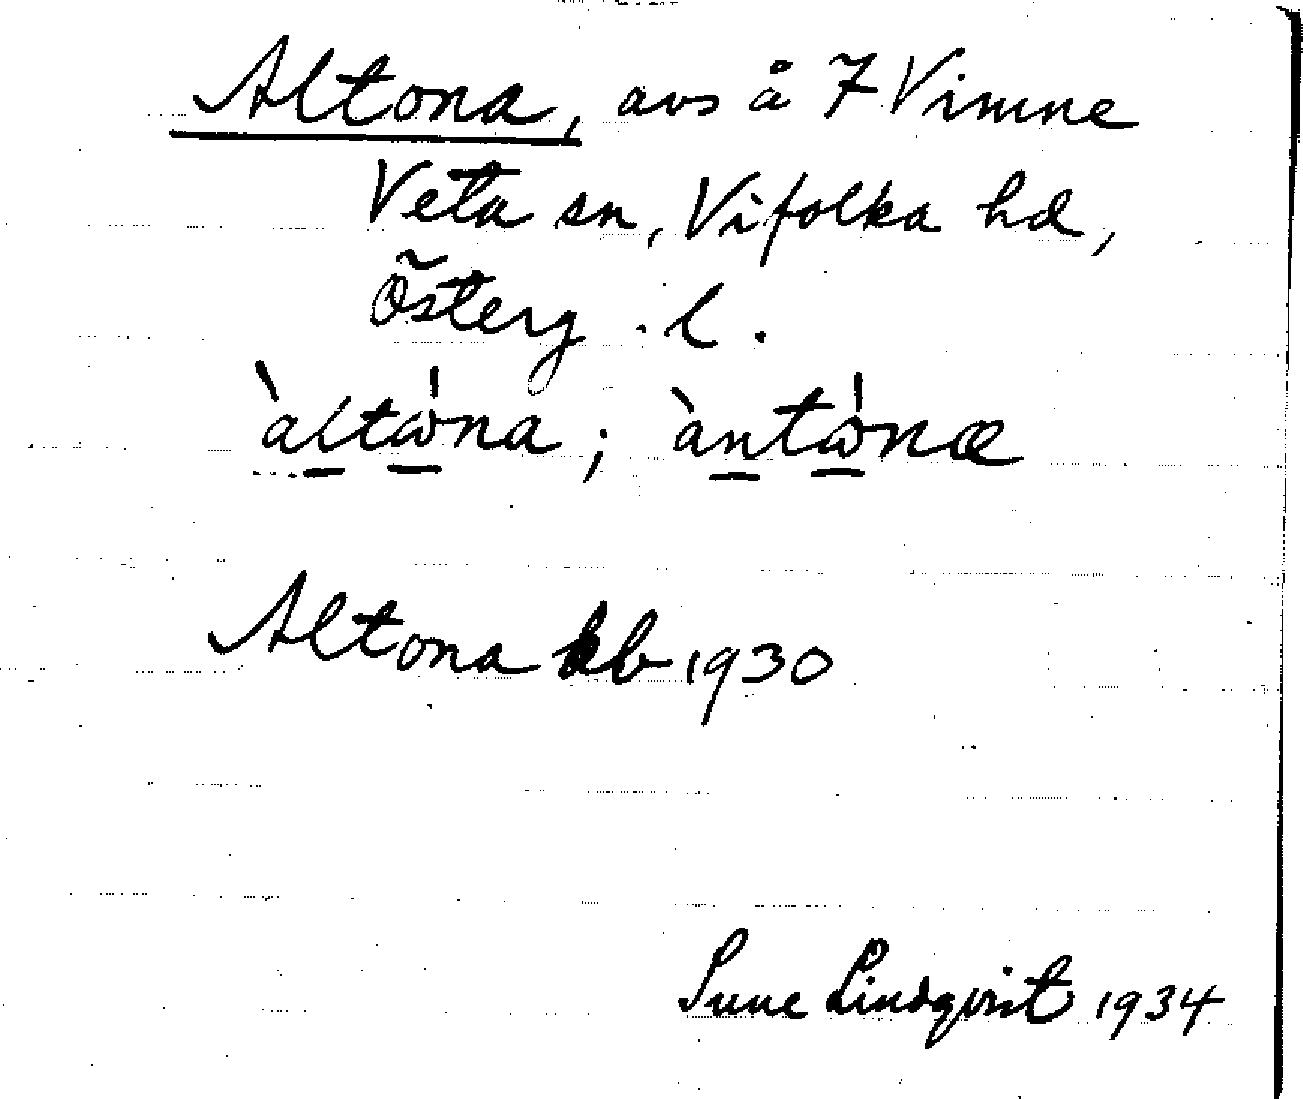 Altona, avs å 7 Vimne
Veta sn, Vifolka hd,
Österg. l.
àltὼna; àntὼnæ
Altona kb 1930
Sune Lindqvist 1934